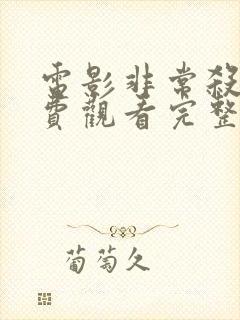 電影非常殺
費觀看完整
葡萄久